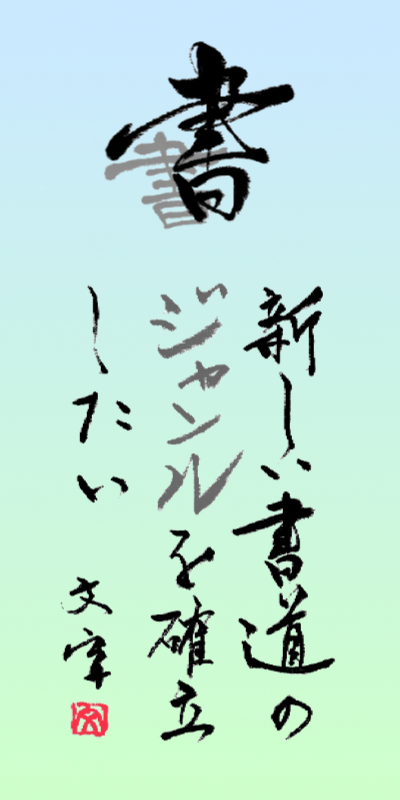 書
書
新しい書道の
ジャンルを確立
したい